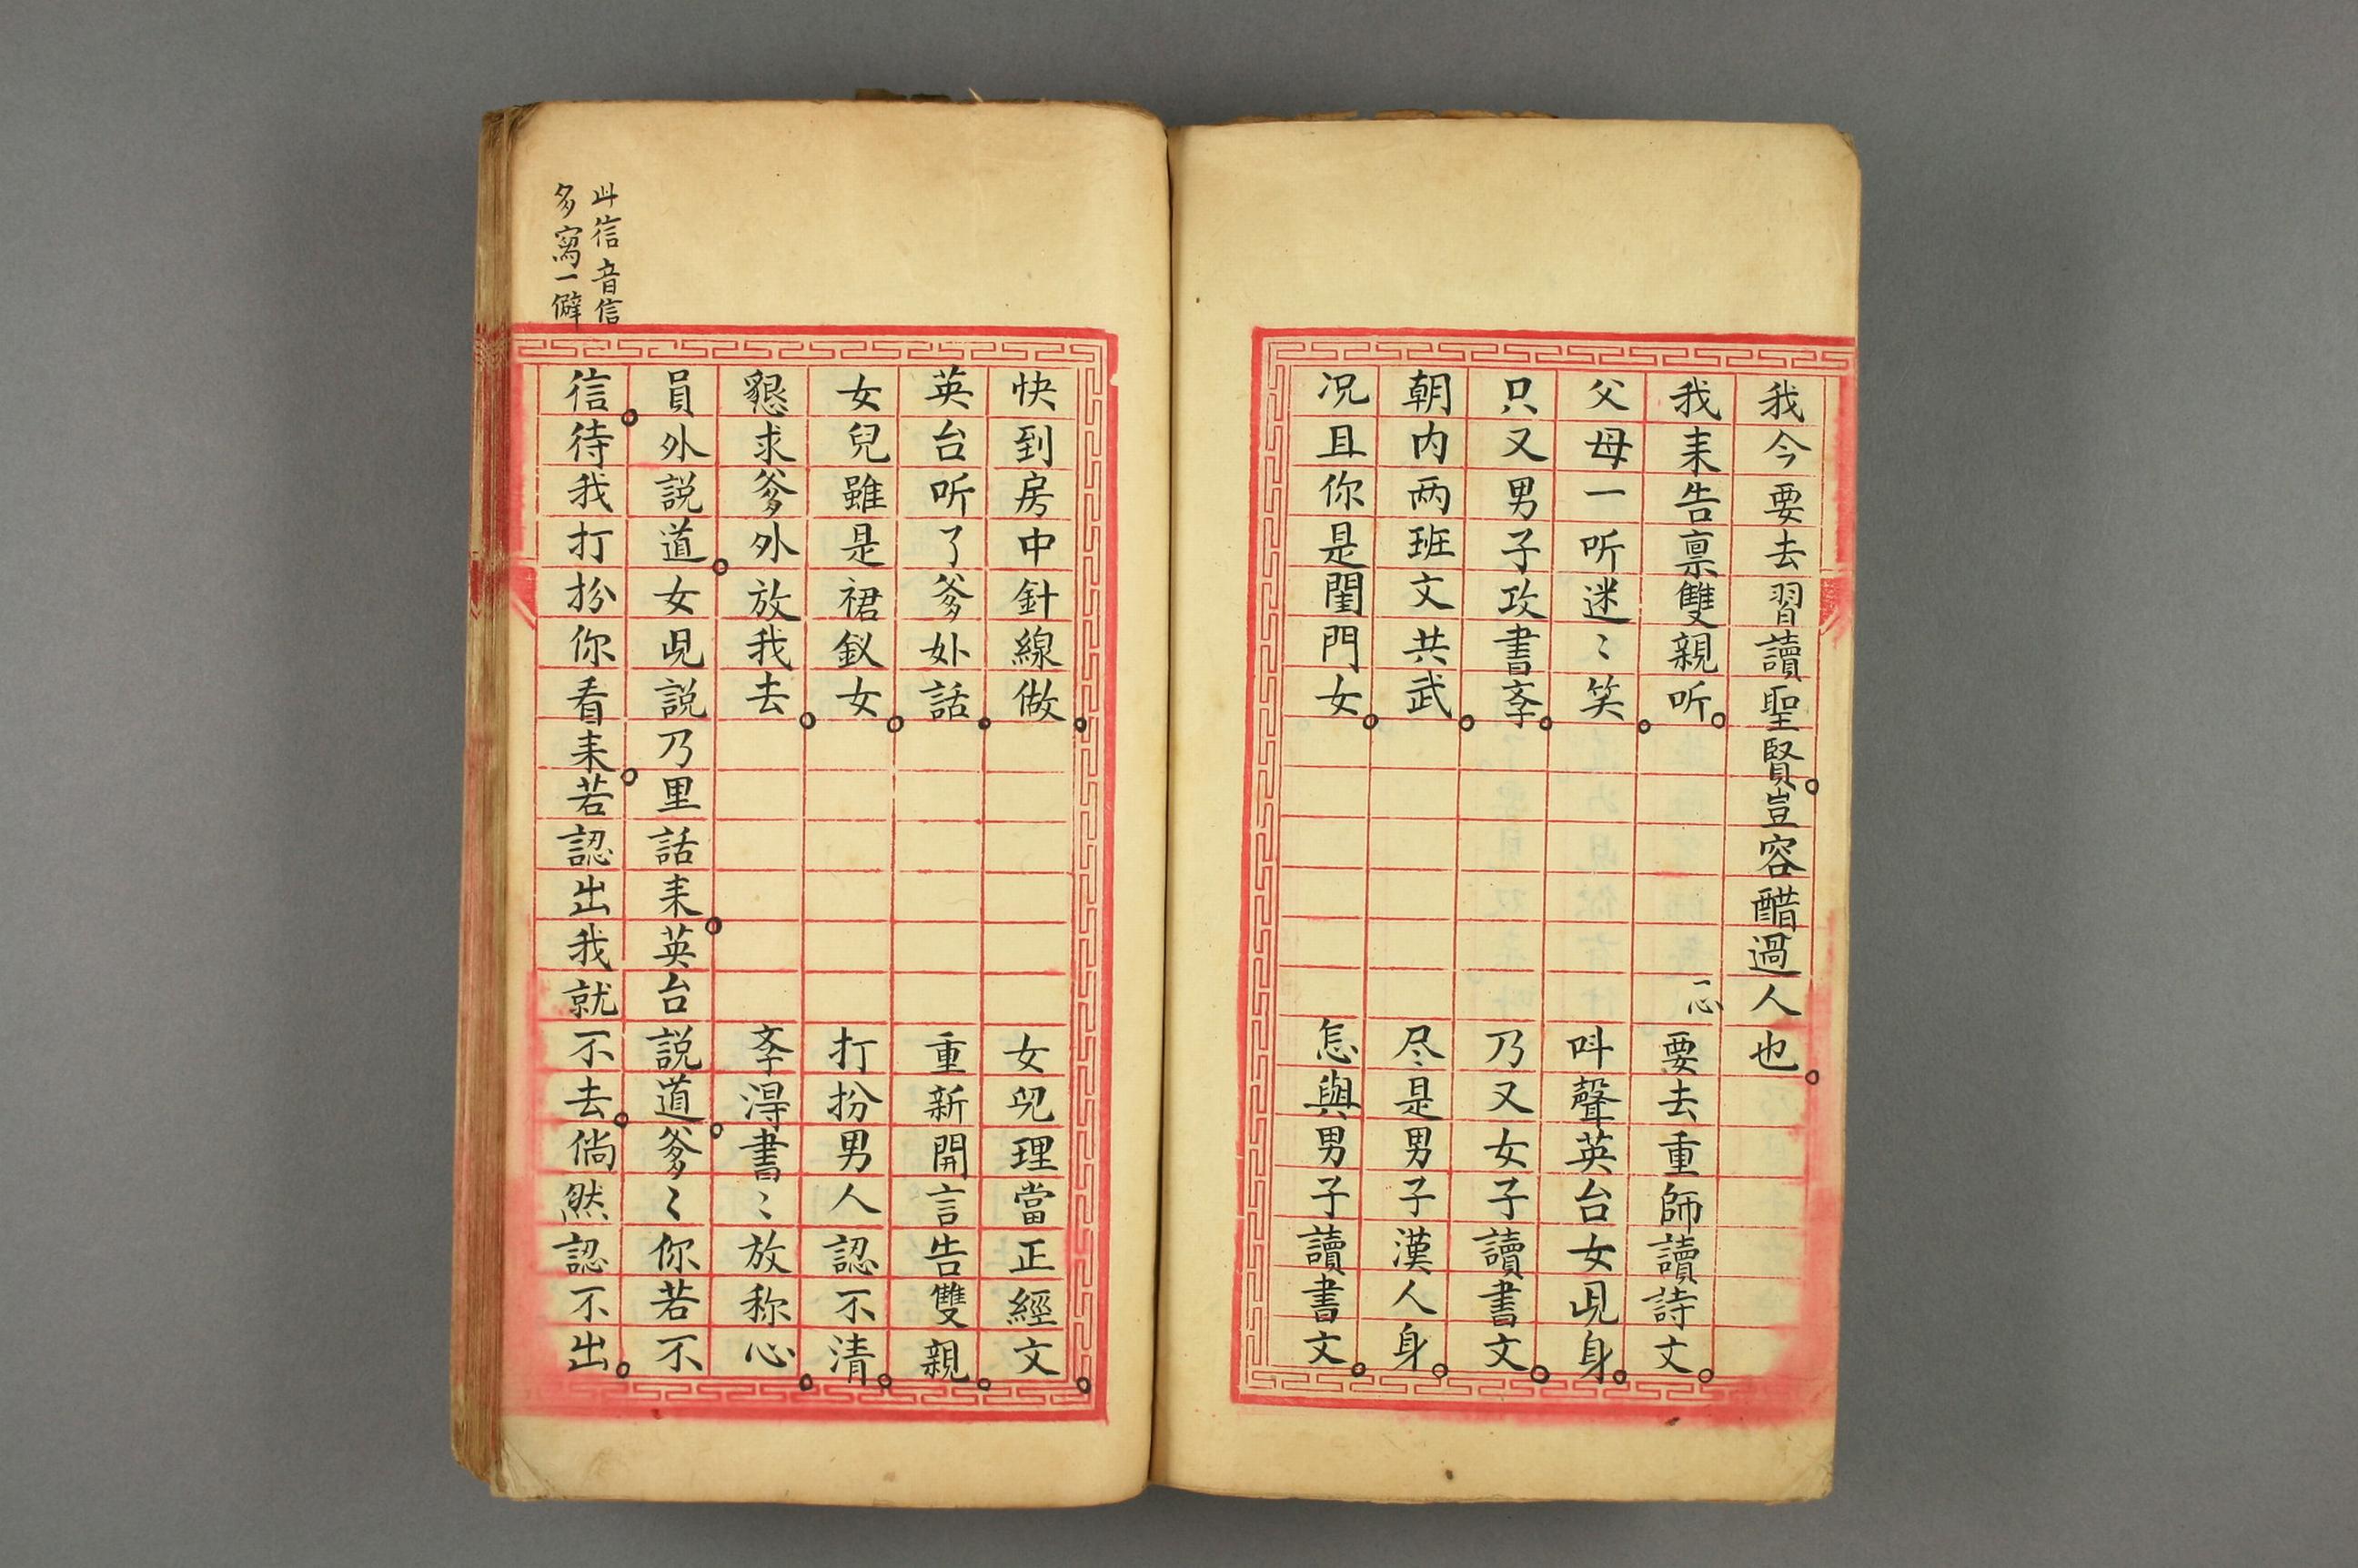 我今要去習讀聖賢。豈容醋過人也。
我耒告禀雙親听。一心要去重師讀詩文。
父母一听迷〻笑。呌聲英台女児身。
只又男子攻書孝。乃又女子讀書文。
朝内两班文共武。尽是男子漢人身。
况且你是閨門女。怎與男子讀書文。
快到房中針線做。女児理當正經文。
英台听了爹外話。重新開言告雙親。
女兒雖是裙釵女。打扮男人認不清。
懇求爹外放我去。孝淂書〻放称心。
員外説道。女児説乃里話耒。英台説道。爹〻你若不
信。待我打扮你看耒。若認出我就不去。倘然認不出。
此信音信
多寫一僻